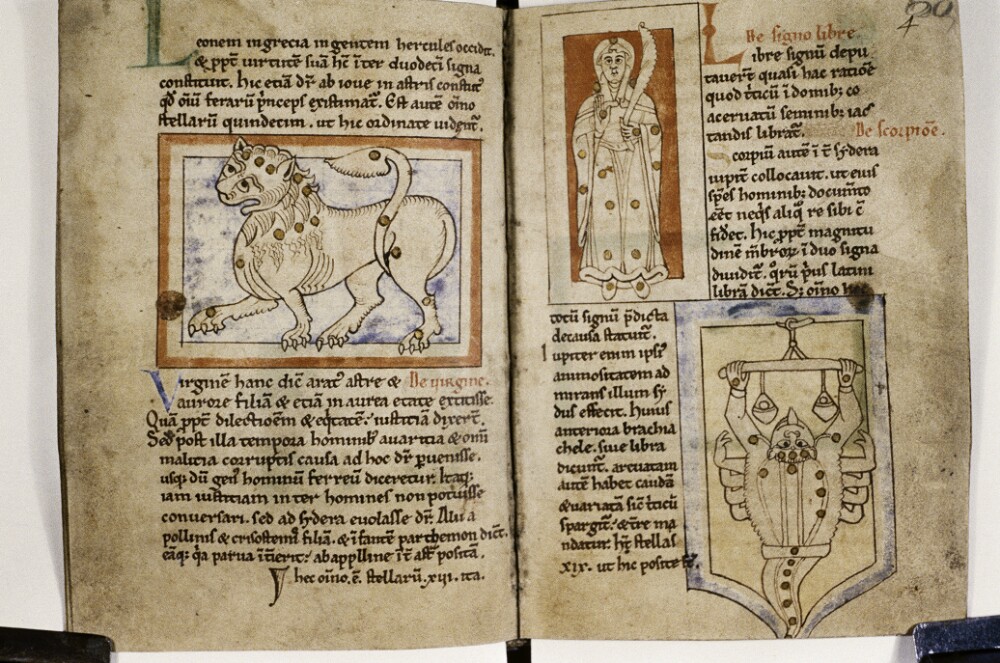 Leonem in grecia ingentem hercules occidit.
& ꝓpt̄ uirtutē suā hc̄ īter duodecī signa
constituit. hic etiā dr̄ ab ioue in astris constit'
qd̄ oiū ferarū p̄nceps existimat̄. Est autē oīno
stellarū quindecim. ut hic ordinate uident̄.
Virginē hanc dic̄ arat' astre & De uirgine.
aurore filiā & etiā in aurea etate extitisse.
Quā ꝓpt̄ dilectioēm & eq̄tatē: iustitiā dixert̄.
Sed post illa tempora hominib; auaritia & omī
malitia corruptis causa ad hoc dr̄ ꝑuenisse.
usq; dū gen' hominū ferreū diceretur. Itaq;
iam iustitiam inter homines non potuisse
conuersari. sed ad sydera euolasse dr̄. Alii a
pollinis & crisostemis filiā. & īfantē parthemon dict̄.
eāq; q̄a parua ītierit: ab applline īt̄ ast̄ positā.
hec oīno. ē. stellarū. xiii. ita.
29
4
De signo libre.
Libre signū depu
tauert̄ quasi hac ratiōe
quod t̄ticū ī domib; co
aceruatū seminib; iac
tandis librat̄. De scorpiōe.
Scorpiū autē ī t̄ sydera
iupit̄ collocauit. ut eius
spēs hominib; documīto
eēt neq̄s aliq̄ re sibi c̄
fidet. hic ꝓpt̄ magnitu
dinē m̄broꝝ ī duo signa
diuidit̄. q̊rū p̄us latini
librā dict̄. Sꝫ oīno hoc
totū signū p̄dicta
de causa statuit̄.
Iupiter enim ipsi'
animositatem ad
mirans illum sy
dus effecit. huius
anteriora brachia
chele. siue libra
dicunt̄. arcuatam
autē habet caudā
& uariatā sic̄ t̄ticū
spargit̄: & t̄re ma
ndatur. hꝫ stellas
xix. ut hic posite st̄.